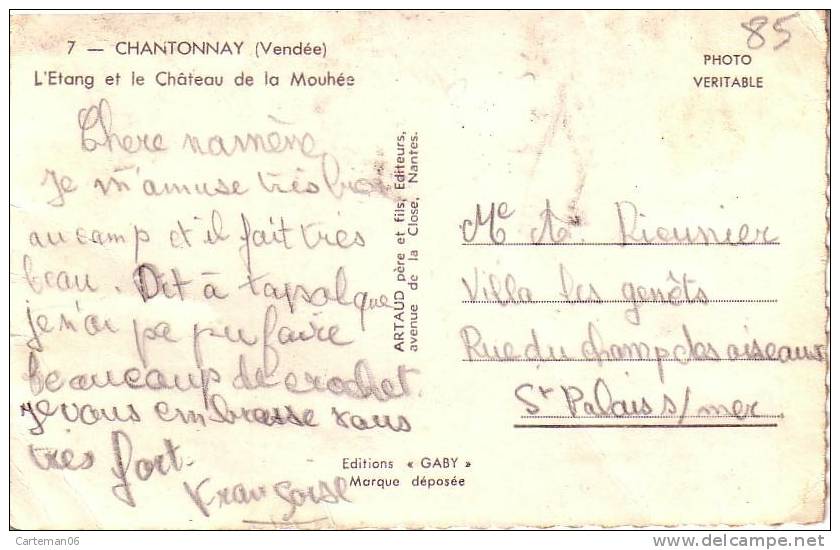 85
7 — CHANTONNAY (Vendée)
L'Etang et le Château de la Mouhée
PHOTO
VERITABLE
Chere namène
Je m'amuse très bien
au camp et il fait très
beau. Dit à tapalque
je n'ai pe pu faire
beaucoup de crochet.
Je vous embrasse tous
très fort.
Françoise
ARTAUD père et fils, Editeurs,
avenue de la Close, Nantes.
Me A. Rieunier
Villa les genêts
Rue du champ des oiseaux
St Palais s/mer
Editions « GABY »
Marque déposée
Carteman06
delcampe.net